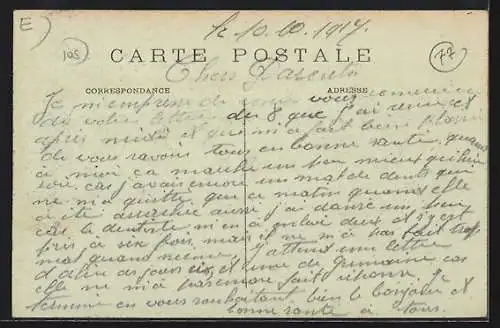 E
105
77
le 10. 10. 1917.
CARTE POSTALE
Chers Parents
CORRESPONDANCE
ADRESSE
Je m'empresse de vous
de votre lettre du 8 que j'ai reçu cet
après midi et qui m'a fait bien plaisir
de vous savoir tous en bonne santé, quand
à moi ça marche un peu mieux qu'hier
soir car j'avais encore un mal de dents qui
ne m'a quitté que ce matin quand elle
a été arrachée aussi j'ai dansé un peu
car le dentiste m'en a enlevé deux et s'y est
pris a six fois, mais il ne m'a pas fait trop
mal quand même. J'attends une lettre
d' et une de Germaine car
elle ne m'a pas encore fait réponse. Je
termine en vous souhaitant bien le bonjour et
bonne santé à tous.